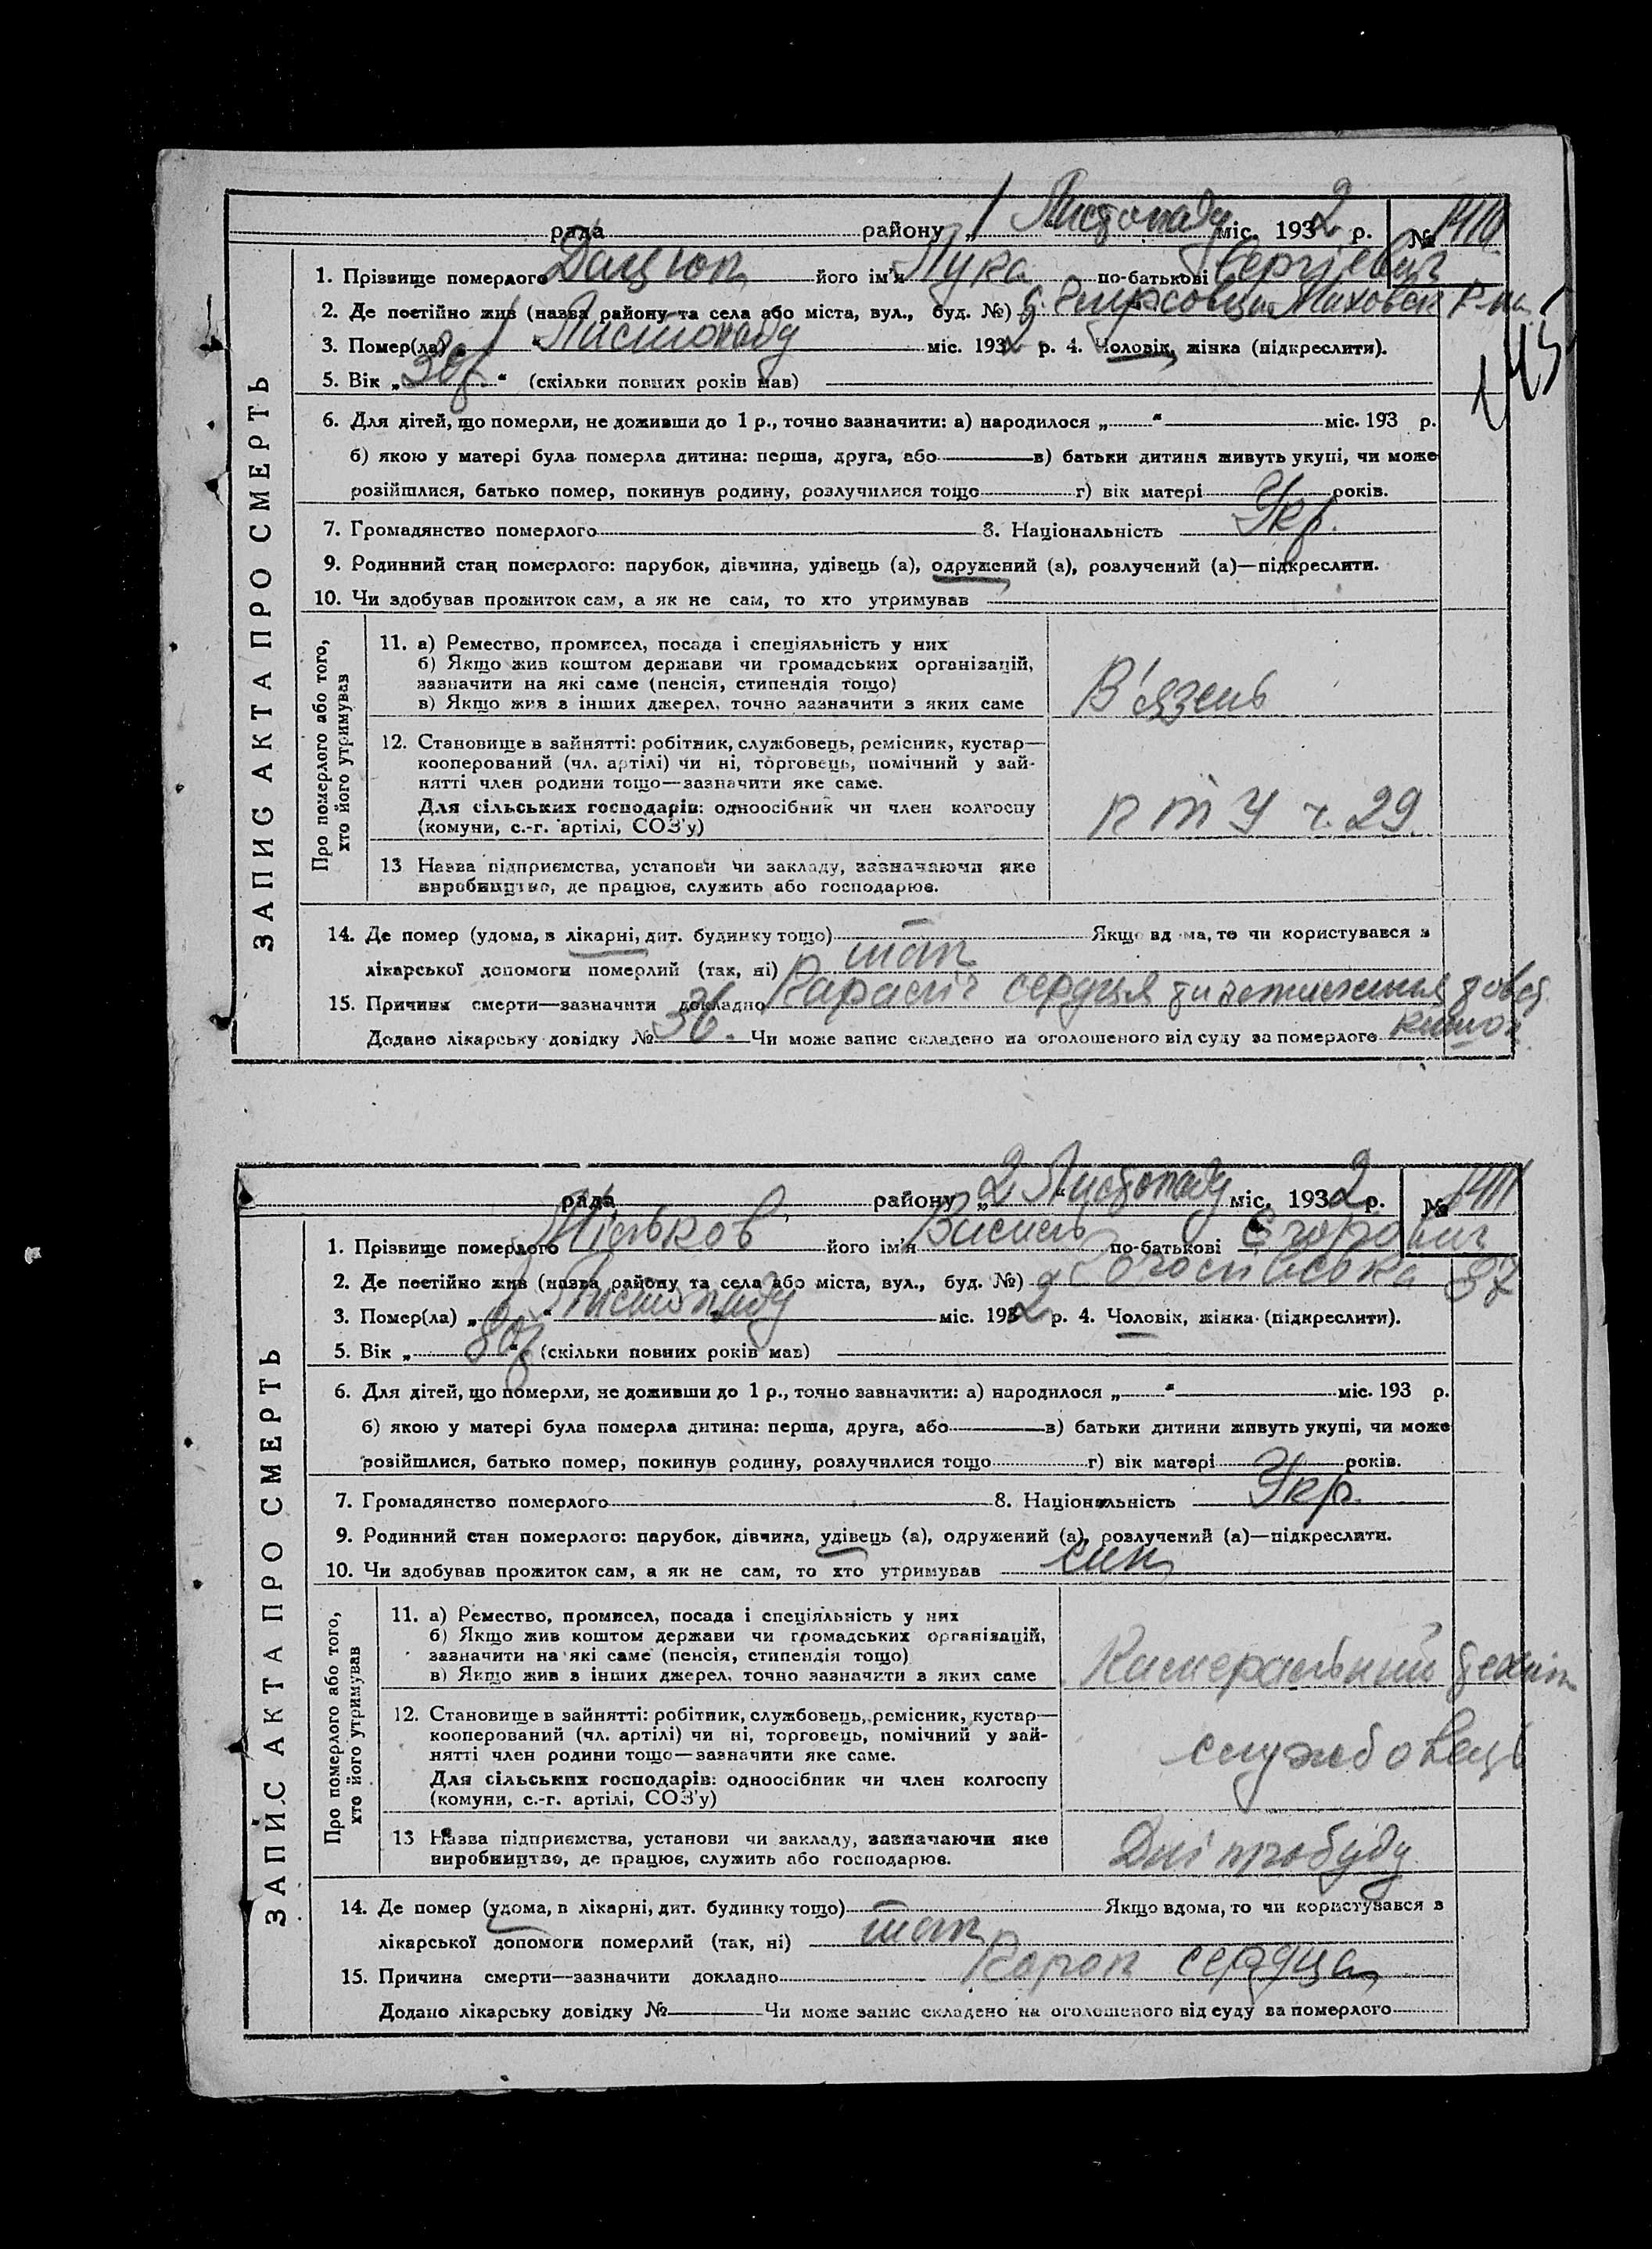 рада района „ 1 Листопаду міс. 1932 р. № 1410
1. Прізвище померлого Дацюк його ім'я Лука по-батькові Сергієвич
2. Де постійно жив (назва району та села або міста, вул., буд. №) с. Маховск р-ну
3. Помер(ла) „ 1 “ Листопаду міс. 1932 р. 4. Чоловік, жінка (підкреслити).
5. Вік „ 30 р. “ (скільки повних років мав)
145
6. Для дітей, що померли, не доживши до 1 р., точно зазначити: а) народилося „ “ міс. 193 р.
б) якою у матері була померла дитина: перша, друга, або в) батьки дитини живуть укупі, чи може
розійшлися, батько помер, покинув родину, розлучилися тощо г) вік матері років.
7. Громадянство померлого 8. Національність Укр.
9. Родинний стан померлого: парубок, дівчина, удівець (а), одружений (а), розлучений (а)—підкреслити.
10. Чи здобував прожиток сам, а як не сам, то хто утримував
ЗАПИС АКТА ПРО СМЕРТЬ
Про померлого або того,
хто його утримував
11. а) Ремество, промисел, посада і спеціяльність у них
б) Якщо жив коштом держави чи громадських організацій,
зазначити на які саме (пенсія, стипендія тощо)
в) Якщо жив з інших джерел, точно зазначити з яких саме
В'язень
12. Становище в зайнятті: робітник, службовець, ремісник, кустар—
кооперований (чл. артілі) чи ні, торговець, помічний у зай-
нятті член родини тощо—зазначити яке саме.
Для сільських господарів: одноосібник чи член колгоспу
(комуни, с.-г. артілі, СОЗ'у)
П т У ч. 29
13 Назва підприємства, установи чи закладу, зазначаючи яке
виробництво, де працює, служить або господарює.
14. Де помер (удома, в лікарні, дит. будинку тощо) Якщо вдома, то чи користувався з
лікарської допомоги померлий (так, ні) так
15. Причина смерти—зазначити докладно Параліч серця
Додано лікарську довідку № 36. Чи може запис складено на оголошеного від суду за померлого
рада району „ 2 “ Листопаду міс. 1932 р. № 1411
1. Прізвище померлого його ім'я Василь по-батькові Єгорович
2. Де постійно жив (назва району та села або міста, вул., буд. №) 87
3. Помер(ла) „ 1 “ Листопаду міс. 1932 р. 4. Чоловік, жінка (підкреслити).
5. Вік „ 80 р. “ (скільки повних років мав)
6. Для дітей, що померли, не доживши до 1 р., точно зазначити: а) народилося „ “ міс. 193 р.
б) якою у матері була померла дитина: перша, друга, або в) батьки дитини живуть укупі, чи може
розійшлися, батько помер, покинув родину, розлучилися тощо г) вік матері років.
7. Громадянство померлого 8. Національність Укр.
9. Родинний стан померлого: парубок, дівчина, удівець (а), одружений (а), розлучений (а)—підкреслити.
10. Чи здобував прожиток сам, а як не сам, то хто утримував син
ЗАПИС АКТА ПРО СМЕРТЬ
Про померлого або того,
хто його утримував
11. а) Ремество, промисел, посада і спеціяльність у них
б) Якщо жив коштом держави чи громадських організацій,
зазначити на які саме (пенсія, стипендія тощо)
в) Якщо жив з інших джерел, точно зазначити з яких саме
Камеральний технік
12. Становище в зайнятті: робітник, службовець, ремісник, кустар—
кооперований (чл. артілі) чи ні, торговець, помічний у зай-
нятті член родини тощо—зазначити яке саме.
Для сільських господарів: одноосібник чи член колгоспу
(комуни, с.-г. артілі, СОЗ'у)
службовець
13 Назва підприємства, установи чи закладу, зазначаючи яке
виробництво, де працює, служить або господарює.
Дніпробуду
14. Де помер (удома, в лікарні, дит. будинку тощо) Якщо вдома, то чи користувався з
лікарської допомоги померлий (так, ні) так
15. Причина смерти—зазначити докладно Порок сердца
Додано лікарську довідку № Чи може запис складено на оголошеного від суду за померлого